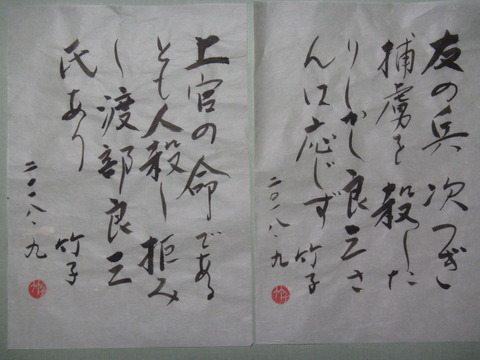 友の兵 次つぎ
捕虜を 殺した
りしかし良三さ
んは応じず
竹子
二〇一八・九
上官の命である
とも人殺し拒み
し渡部良三
氏あり
竹子
二〇一八・九